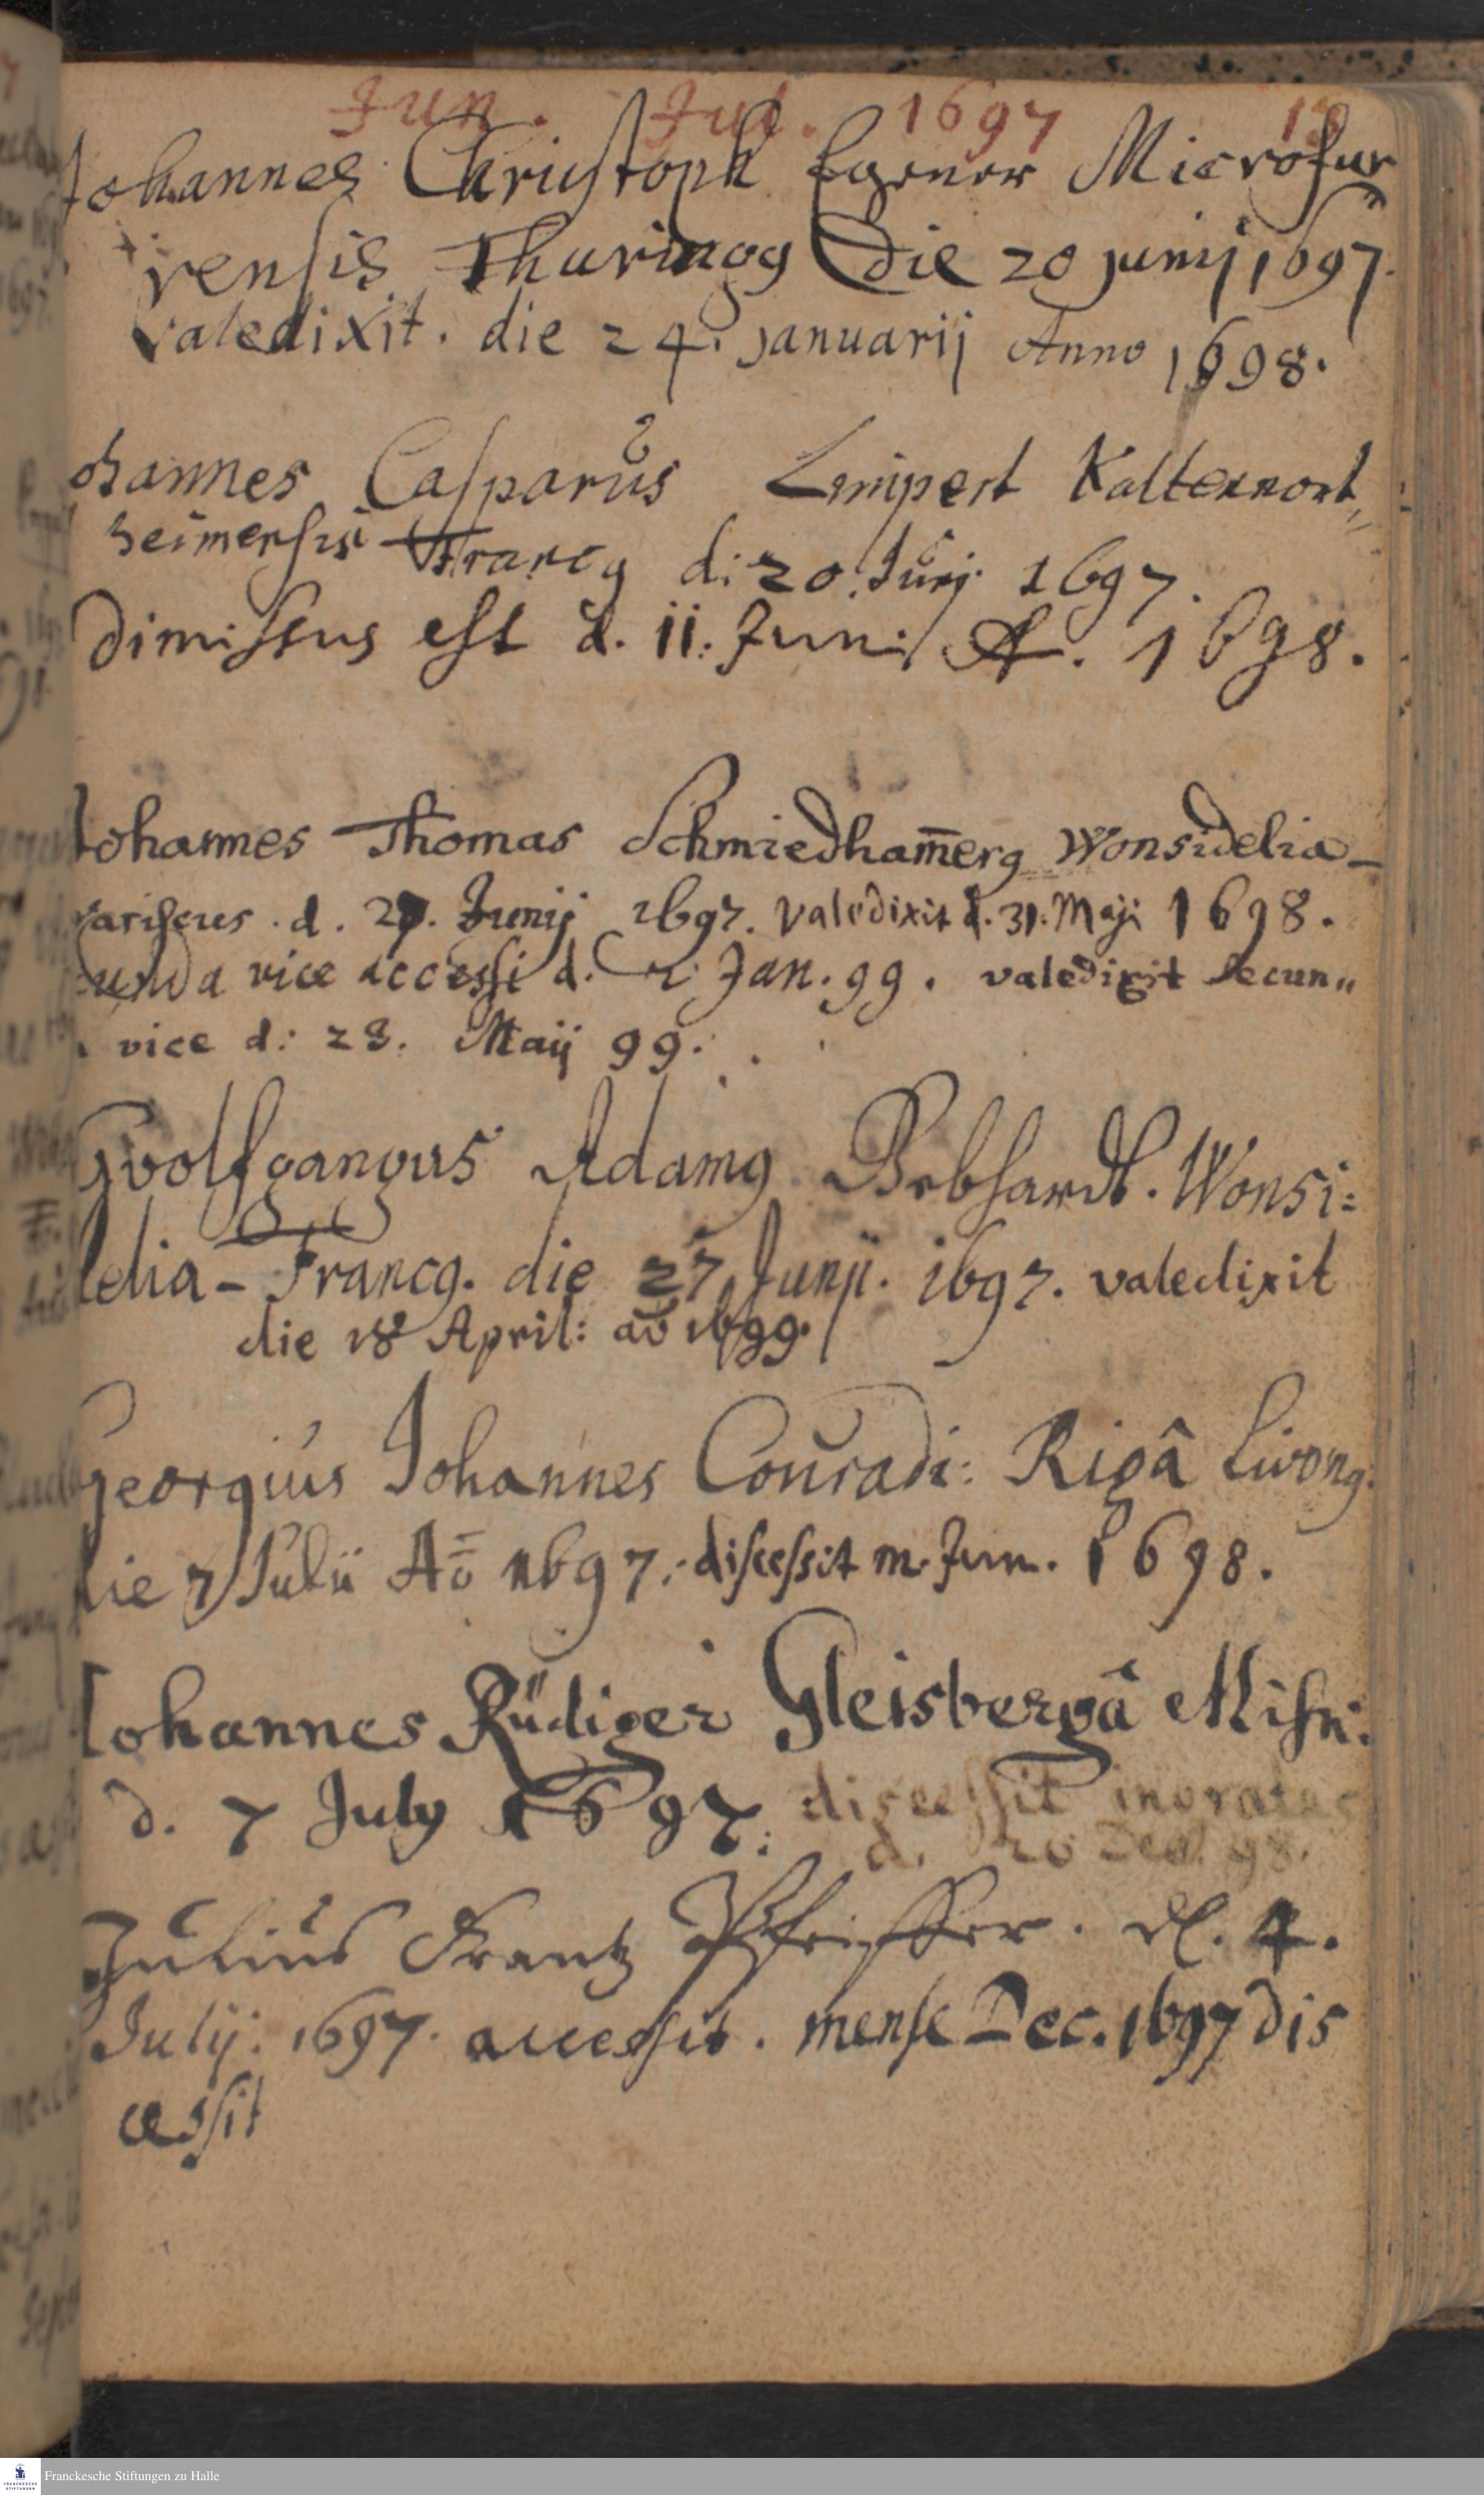 Jun. Jul. 1697 13
Johannes Christoph Egener Microfur
rensis Thuringg die 20 junij 1697.
valedixit. die 24. januarij Anno 1698.
ohannes Casparus Limpert Kaltennort„
heimensis Francg d: 20. Junj. 1697.
dimissus est d. 11. Juni A. 1698.
Johannes Thomas Schmiedham̄erg Wonsidelia-
variscus. d. 27. Junij 1697. Valedixit d. 31. Maji 1698.
cunda vice accessi d. 2 Jan. 99. valedixit secun„
vice d: 28. Maij 99.
Gvolfgangus Adamg Bebhardt. Wonsi:
delia- Francg. die 27 Junji. 1697. valedixit
die 18 April: ao 1699.
Georgius Johannes Conradi: Rigâ Livong.
die 7 Julii Ao 1697. discessit m. Jun. 1698.
Johannes Rüdiger Gleisbergâ Misn:
d. 7 July 1697. discessit ingratus
d. 20 Dec. 98.
Julius Frantz Pfeiffer. d. 4.
Julij: 1697. accessit. mense Dec. 1697 dis
cessit
Franckesche Stiftungen zu Halle